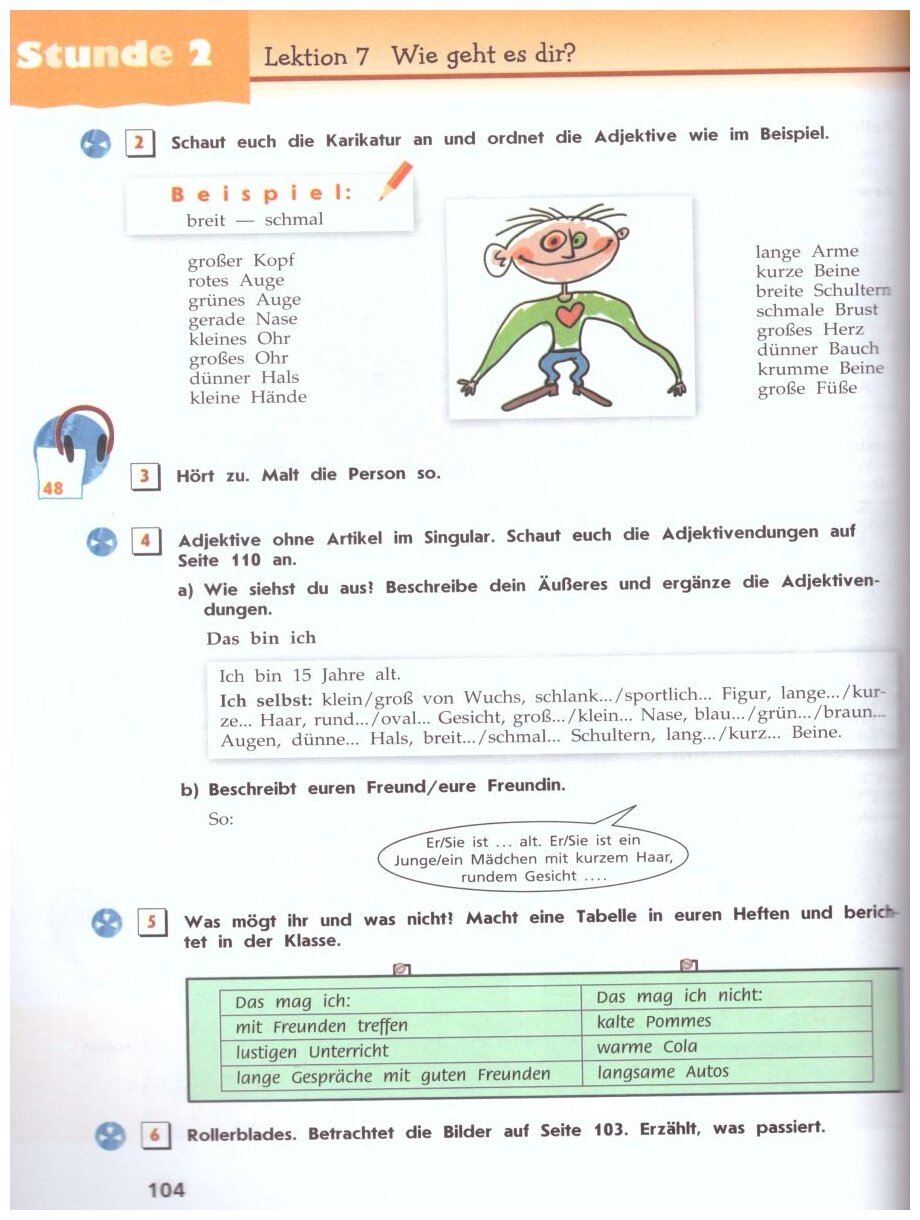 Stunde 2
Lektion 7 Wie geht es dir?
2 Schaut euch die Karikatur an und ordnet die Adjektive wie im Beispiel.
Beispiel:
breit — schmal
großer Kopf
rotes Auge
grünes Auge
gerade Nase
kleines Ohr
großes Ohr
dünner Hals
kleine Hände
lange Arme
kurze Beine
breite Schultern
schmale Brust
großes Herz
dünner Bauch
krumme Beine
große Füße
48
3 Hört zu. Malt die Person so.
4 Adjektive ohne Artikel im Singular. Schaut euch die Adjektivendungen auf
Seite 110 an.
a) Wie siehst du aus? Beschreibe dein Äußeres und ergänze die Adjektiven-
dungen.
Das bin ich
Ich bin 15 Jahre alt.
Ich selbst: klein/groß von Wuchs, schlank.../sportlich... Figur, lange.../kur-
ze... Haar, rund.../oval... Gesicht, groß.../klein... Nase, blau.../grün.../braun...
Augen, dünne... Hals, breit.../schmal... Schultern, lang.../kurz... Beine.
b) Beschreibt euren Freund/eure Freundin.
So:
Er/Sie ist ... alt. Er/Sie ist ein
Junge/ein Mädchen mit kurzem Haar,
rundem Gesicht ....
5 Was mögt ihr und was nicht? Macht eine Tabelle in euren Heften und berich-
tet in der Klasse.
Das mag ich: Das mag ich nicht:
mit Freunden treffen kalte Pommes
lustigen Unterricht warme Cola
lange Gespräche mit guten Freunden langsame Autos
6 Rollerblades. Betrachtet die Bilder auf Seite 103. Erzählt, was passiert.
104